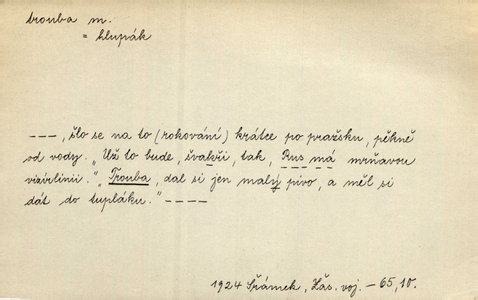 trouba m.
= hlupák
---, šlo se na to (rokování) krátce po pražsku, pěkně
od vody. „Už to bude, švakři, tak, Rus má mrňavou
vizírlinii." „Trouba, dal si jen malý pivo, a měl si
dát do tupláku." ----
1924 Šrámek, Žás. voj. - 65, 10.